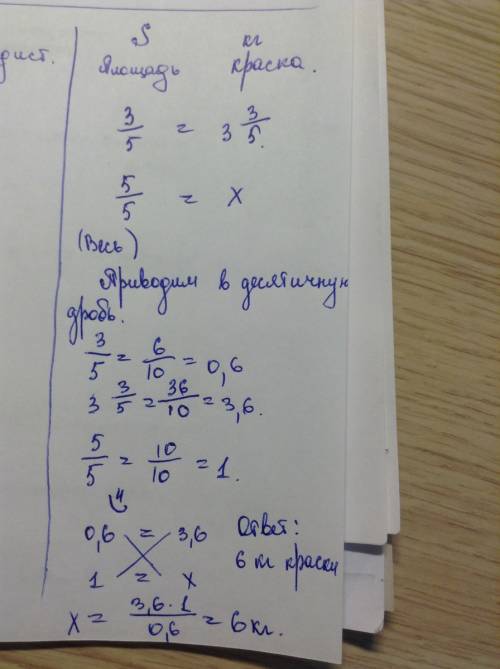 дист.
S кг
Площадь краска.
3/5 = 3 3/5.
5/5 = x
(Весь)
Приводим в десятичную
дробь.
3/5 = 6/10 = 0,6
3 3/5 = 36/10 = 3,6.
5/5 = 10/10 = 1.
0,6 = 3,6 Ответ:
1 = x 6 кг краски
x = 3,6 · 1/0,6 = 6 кг.